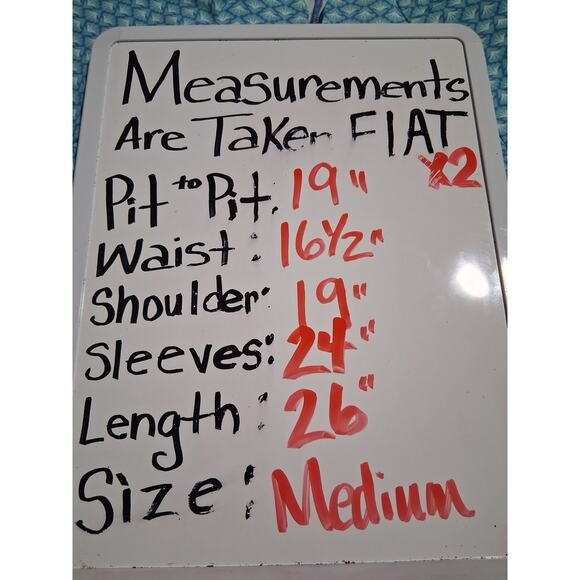 Measurements
Are Taken FlAT
x2
Pit to Pit: 19"
Waist: 16½"
Shoulder: 19"
Sleeves: 24"
Length: 26"
Size: Medium